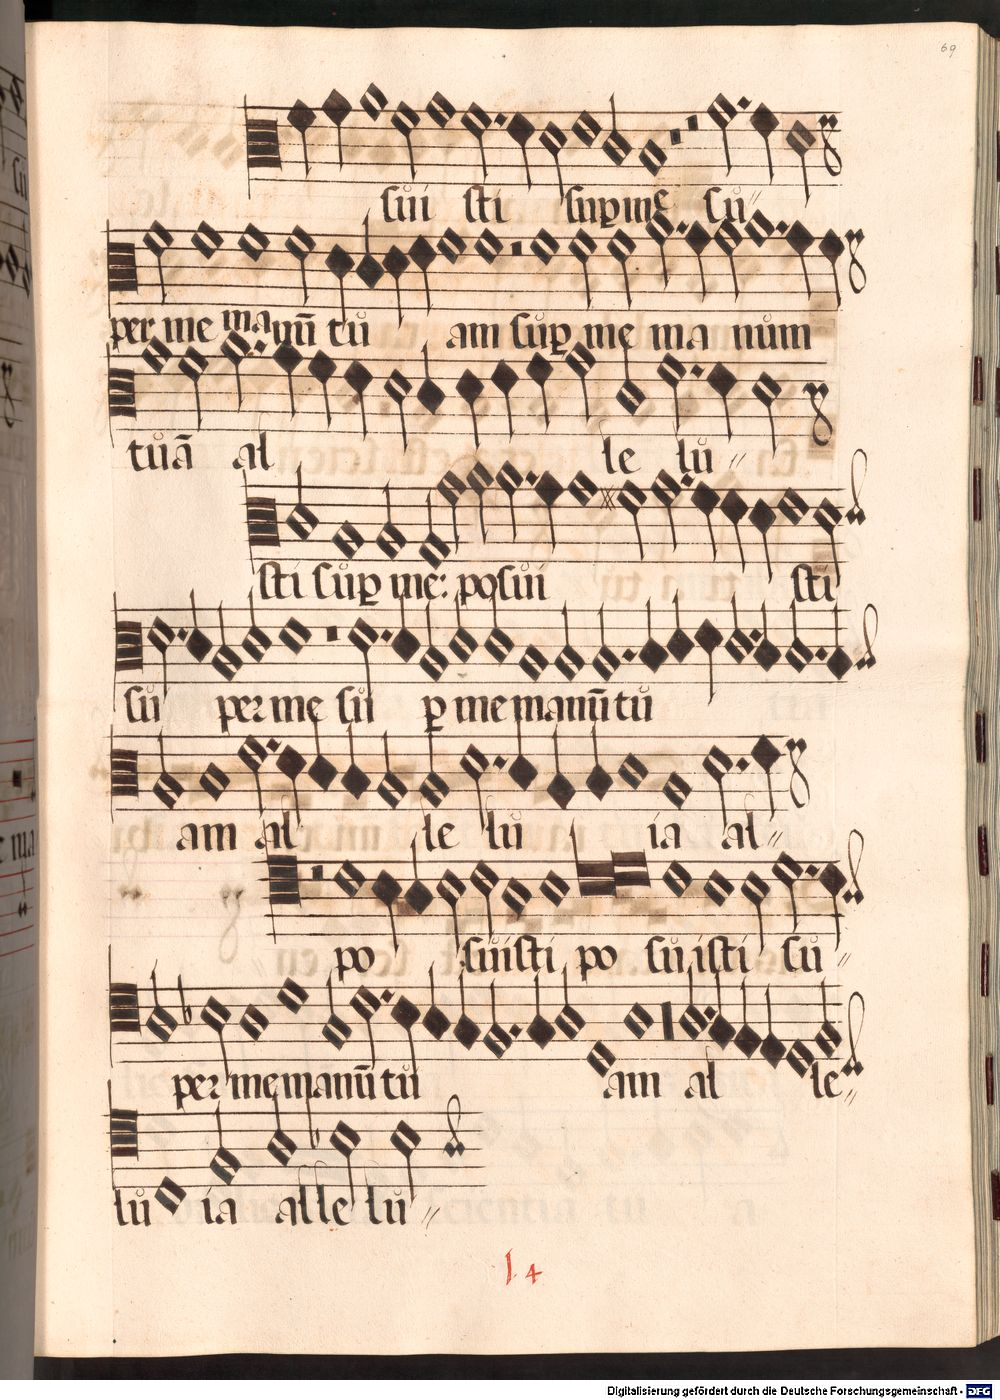 69
sui sti sup me su〃
per me manū tu am sup me ma num
tuā al le lu〃
sti sup me: posui sti
su per me su p me manū tu
am al le lu ia al〃
po suisti po suisti su〃
per me manū tu am al le〃
lu ia alle lu〃
14
Digitalisierung gefördert durch die Deutsche Forschungsgemeinschaft - DFG